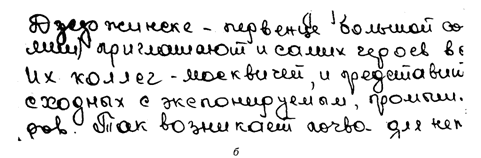 Дзержинске - первенце большой со
лии, приглашают и самих героев ве
их коллег - москвичей, и представит
сходных с экспонируемым, промыш.
ров. Так возникает почва для неп
б